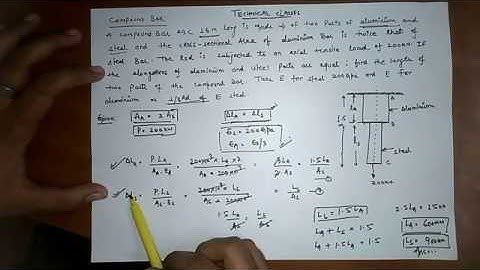 Compound Bar
TECHNICAL CLASSES
A compound Bar ABC 1.5 m long is made of two parts of aluminium and
steel and the cross-sectional Area of aluminium Bar is twice that of
steel Bar. The Rod is subjected to an axial tensile load of 200kN. If
the elongations of aluminium and steel parts are equal; find the length of
two parts of the compound bar. Take E for steel 200Gpa and E for
aluminium as 1/3rd of E steel.
Given
A_A = 2 A_s
ΔL_A = ΔL_s
P = 200kN
E_s = 200Gpa
E_A = E_s/3
Aluminium
Steel
200kN
ΔL_A = P.L_A / A_A.E_A
= 1.5L_A / A_s
P.L_s / A_s.E_s
= L_s / A_s
1.5 L_A / A_s = L_s / A_s
L_s = 1.5 L_A
L_A + L_s = 1.5
L_A + 1.5L_A = 1.5
2.5L_A = 1500
L_A = 600mm
L_s = 900mm